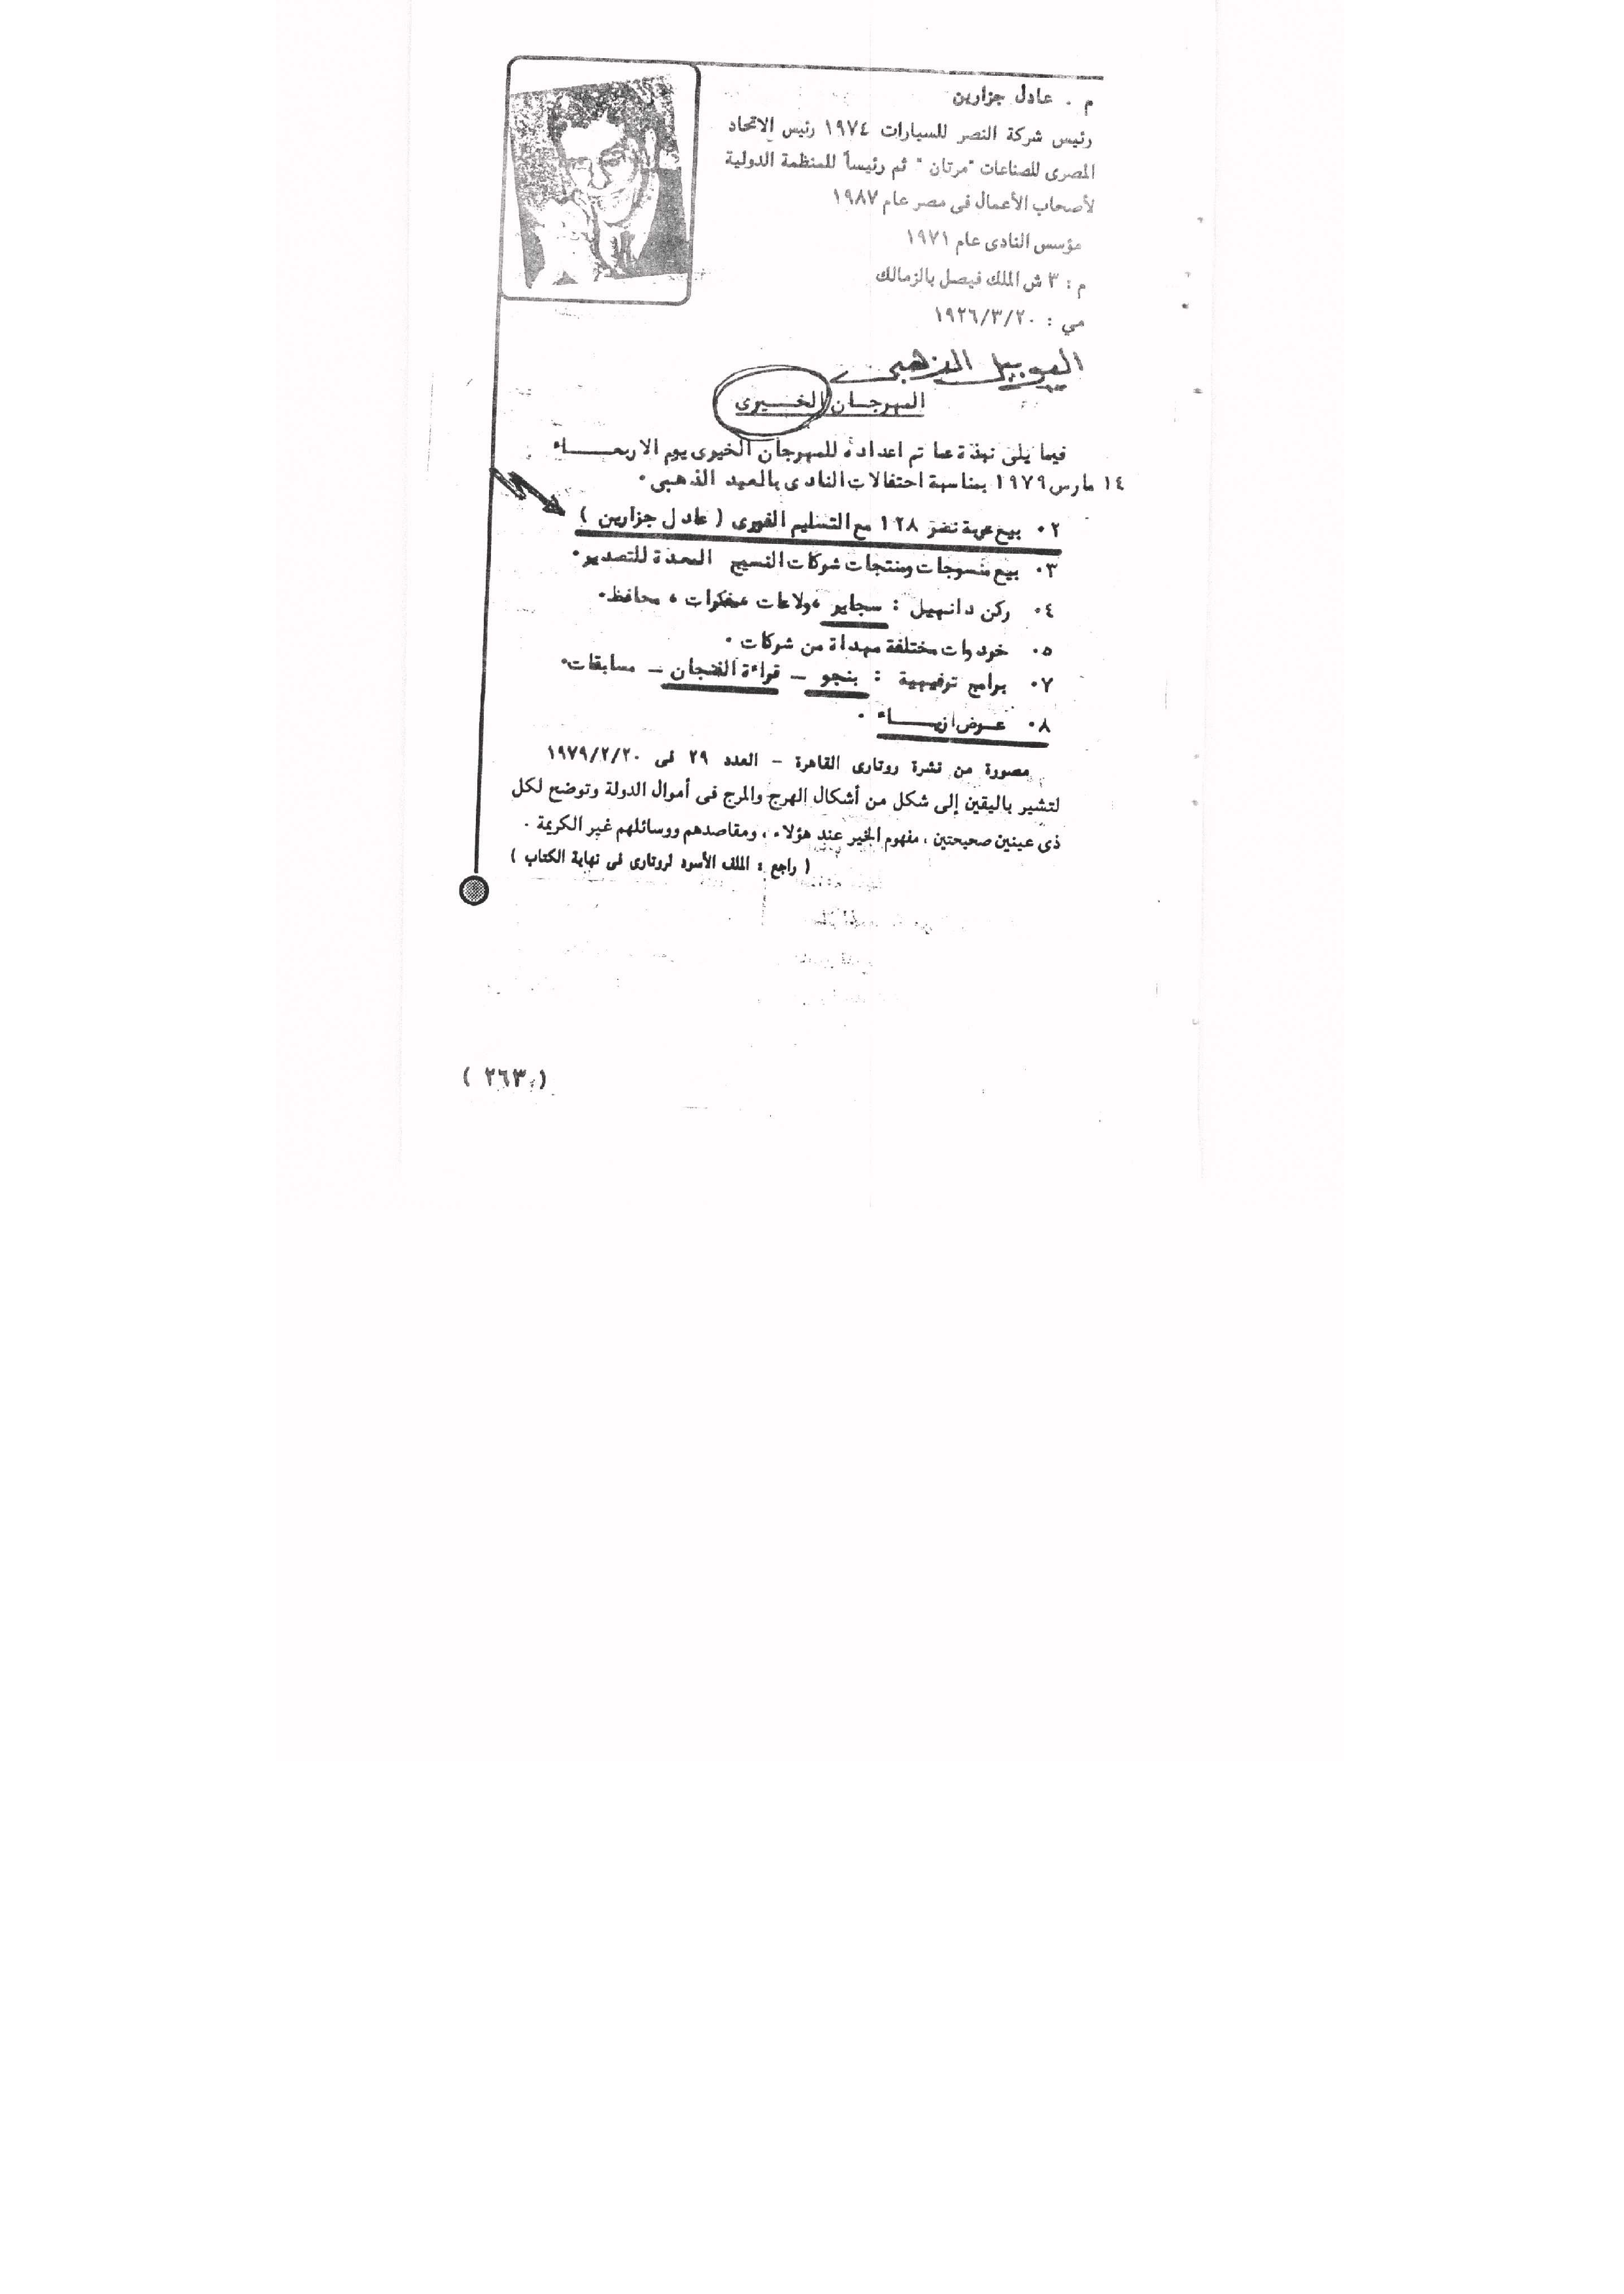 م . عادل جزارين
رئيس شركة النصر للسيارات ١٩٧٤ رئيس الاتحاد
المصرى للصناعات "مرتان" ثم رئيساً للمنظمة الدولية
لأصحاب الأعمال فى مصر عام ١٩٨٧
مؤسس النادى عام ١٩٧١
م : ٣ ش الملك فيصل بالزمالك
مي : ١٩٢٦/٣/٢٠
اليوبيل الذهبى
المهرجــان الخــيرى
فيما يلى نبذة عما تم اعداده للمهرجان الخيرى يوم الاربعــــاء
١٤ مارس ١٩٧٩ بمناسبة احتفالات النادى بالعيد الذهبى ٠
٠٢ بيع عربة نصر ١٢٨ مع التسليم الفورى ( عادل جزارين )
٠٣ بيع منسوجات ومنتجات شركات النسيج المعدة للتصدير ٠
٠٤ ركن دانهيل : سجاير ، ولاعات ، محافظ ٠
٠٥ خردوات مختلفة مهداة من شركات ٠
٠٧ برامج ترفيهية : بنجو – قراءة الفنجان – مسابقات ٠
٠٨ عــرض ازيــــاء ٠
مصورة من نشرة روتارى القاهرة – العدد ٢٩ فى ١٩٧٩/٢/٢٠
لتشير باليقين إلى شكل من أشكال الهرج والمرج فى أموال الدولة وتوضح لكل
ذى عينين صحيحتين ، مفهوم الخير عند هؤلاء ، ومقاصدهم ووسائلهم غير الكريمة .
( راجع : الملف الأسود لروتارى فى نهاية الكتاب )
( ٢٦٣ )